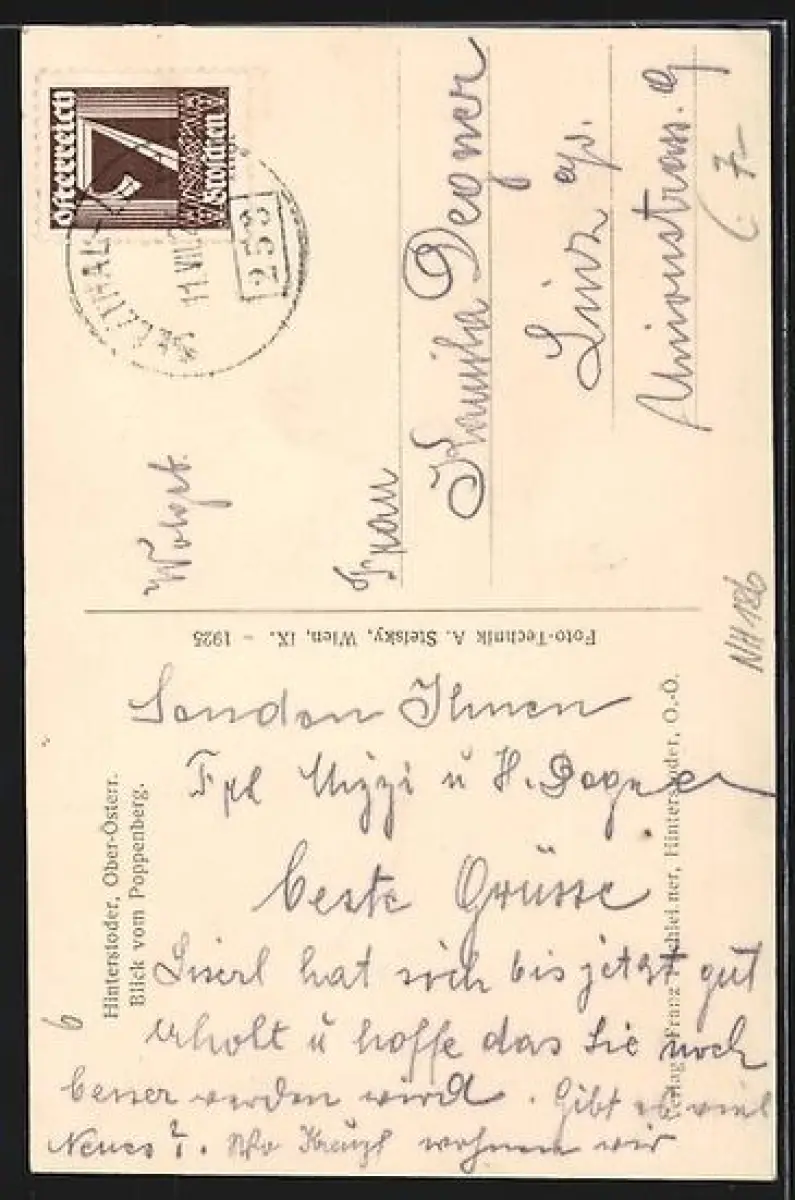 österreich
7
Groschen
SELZTHAL-
11.VIII.
253
Wolgeb.
Frau
Kamila Degner
Linz a/D.
Unionstras. 9
(. 7-
NH 186
Foto-Technik A. Stelsky, Wien, IX. - 1925
Hinterstoder, Ober-Österr.
Blick vom Poppenberg.
Verlag Franz ner, Hinterstoder, O.-Ö.
6
Senden Ihnen
Frl Mizzi u H. Degner
beste Grüsse
Liserl hat sich bis jetzt gut
erholt u hoffe das Sie noch
besser werden wird. Gibt es viel
Neues?. Wo Kreuzl wohnen wir